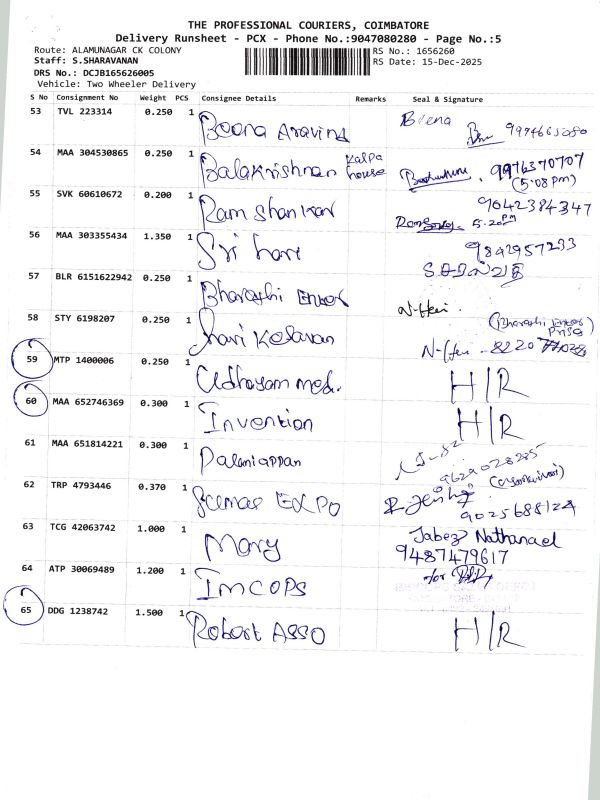 THE PROFESSIONAL COURIERS, COIMBATORE
Delivery Runsheet - PCX - Phone No.:9047080280 - Page No.:5
Route: ALAMUNAGAR CK COLONY RS No.: 1656260
Staff: S.SHARAVANAN RS Date: 15-Dec-2025
DRS No.: DCJB165626005
Vehicle: Two Wheeler Delivery
S No Consignment No Weight PCS Consignee Details Remarks Seal & Signature
53 TVL 223314 0.250 1 Beena Aravind Beena 9974665080
54 MAA 304530865 0.250 1 Balakrishnan Kalpa house 9976370707
(5:08 pm)
55 SVK 60610672 0.200 1 Ram Shankar 9042384347
5.20 PM
56 MAA 303355434 1.350 1 Sri hari 9842957233
57 BLR 6151622942 0.250 1 Bharathi N-Hari
58 STY 6198207 0.250 1 hari Kesavan (Bharathi
N-Hari - 82207
59 MTP 1400006 0.250 1 Udhayam med. H/R
60 MAA 652746369 0.300 1 Invention H/R
61 MAA 651814221 0.300 1 Palaniappan 9629028285
62 TRP 4793446 0.370 1 EXPO 9025688124
63 TCG 42063742 1.000 1 Mary Jabez Nathanael
9487479617
64 ATP 30069489 1.200 1 IMCOPS for
65 DDG 1238742 1.500 1 Robert ASSO H/R